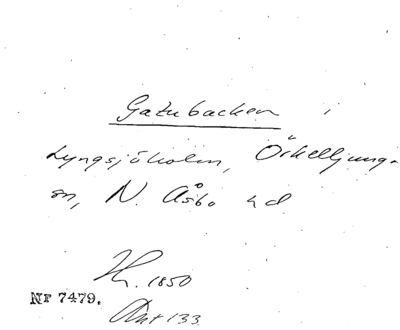 Gatubacken i
Lyngsjöholm, Örkelljunga
sn, N. Åsbo hd
1850
NF 7479.
Ant 133.